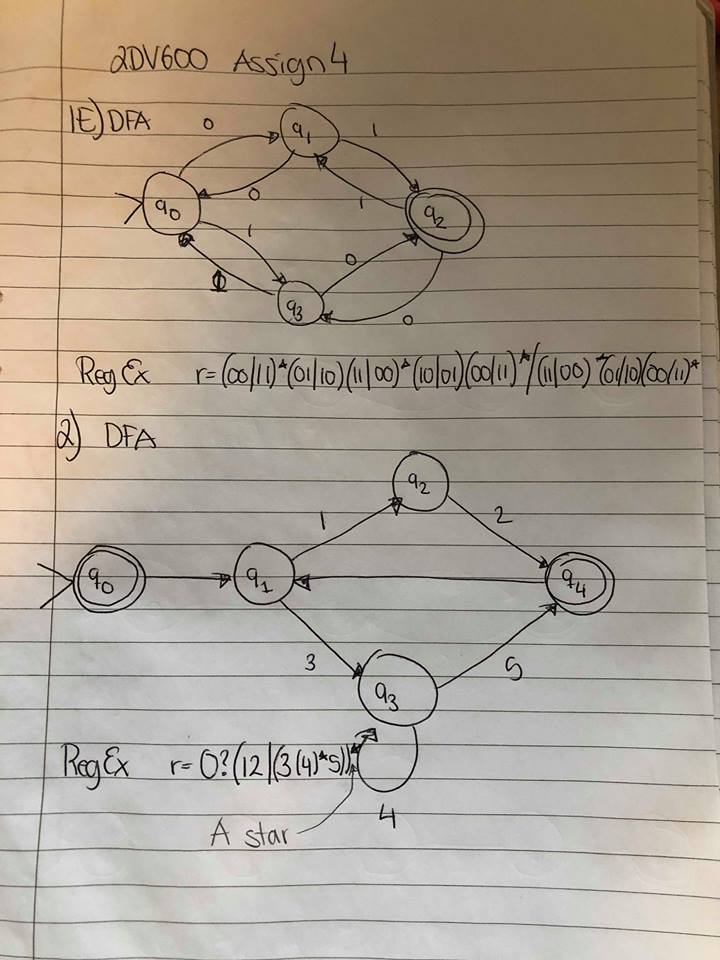 2DV600 Assign 4
1E) DFA
0
q1
1
q0
0
1
q2
1
0
q3
0
Reg Ex r= (00/11)*(01/10)(11/00)*(10/01)(00/11)*/(11/00)*(01/10)(00/11)*
2) DFA
q2
1
2
q0
q1
q4
3
q3
5
Reg Ex r= 0?(12|(3(4)*5))*
4
A star